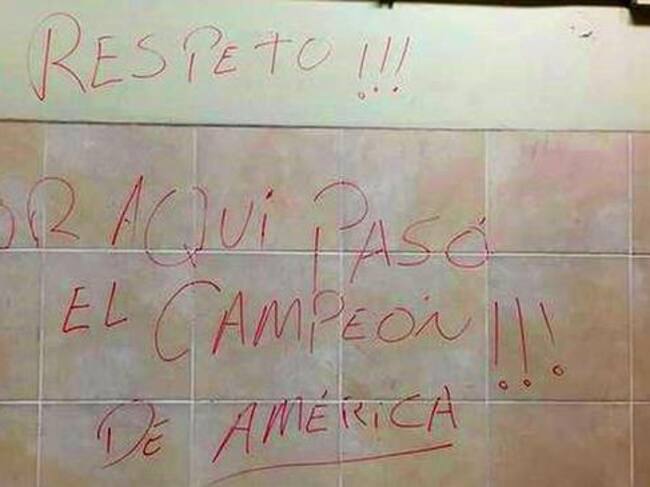 RESPETO!!!
OR AQUi PASÓ
EL CAMPEÓN!!!
DE AMÉRICA